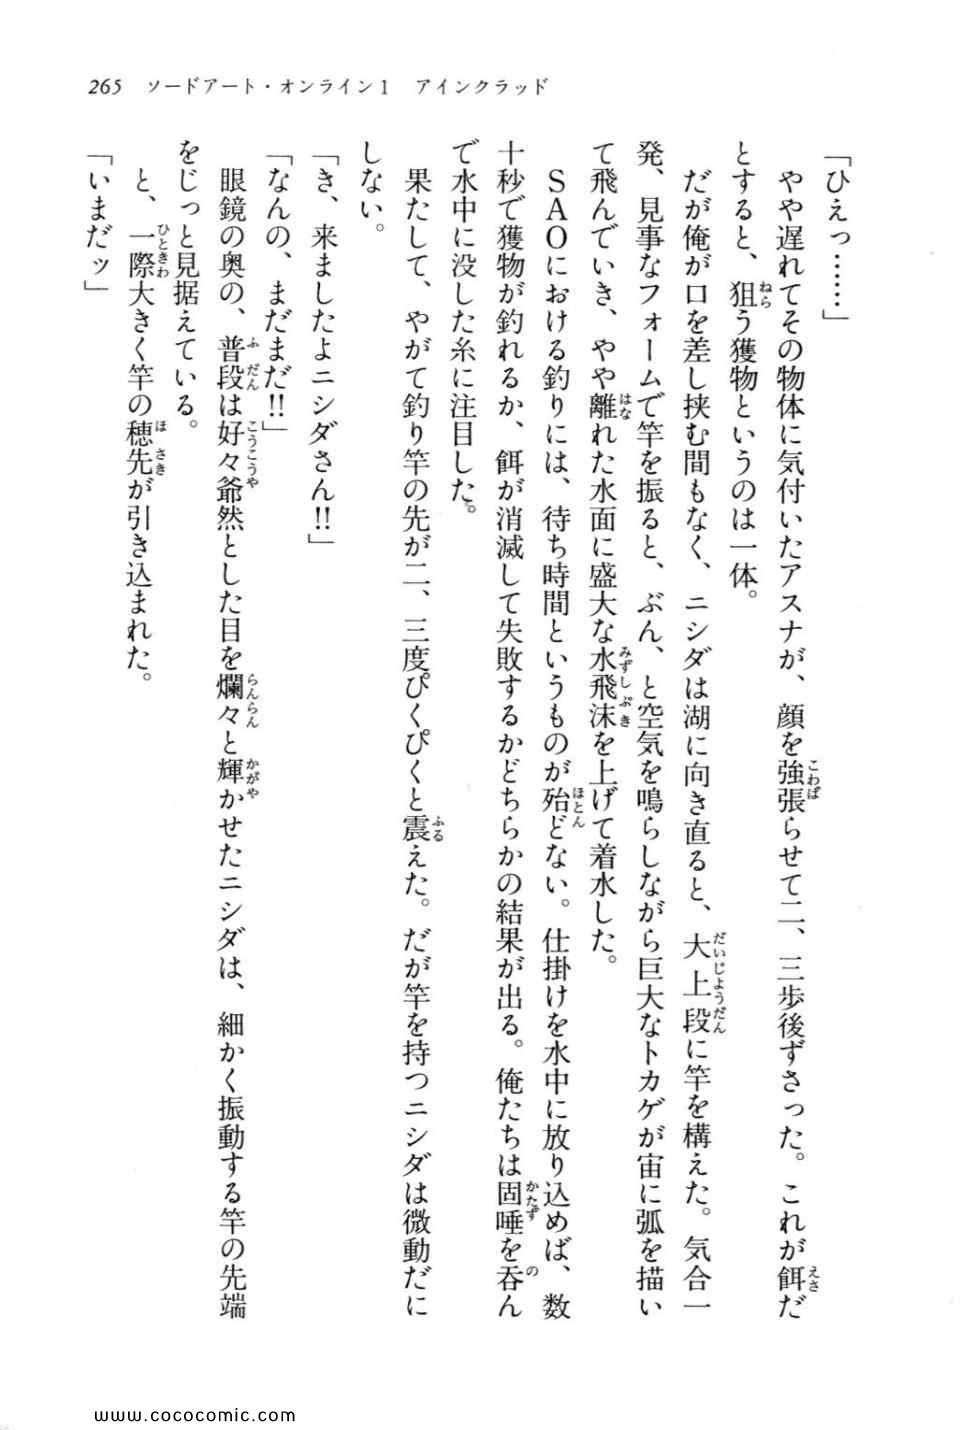 265 ソードアート・オンライン1 アインクラッド
「ひえっ……」
やや遅れてその物体に気付いたアスナが、顔を強張らせて二、三歩後ずさった。これが餌だ
とすると、狙う獲物というのは一体。
だが俺が口を差し挟む間もなく、ニシダは湖に向き直ると、大上段に竿を構えた。気合一
発、見事なフォームで竿を振ると、ぶん、と空気を鳴らしながら巨大なトカゲが宙に弧を描い
て飛んでいき、やや離れた水面に盛大な水飛沫を上げて着水した。
SAOにおける釣りには、待ち時間というものが殆どない。仕掛けを水中に放り込めば、数
十秒で獲物が釣れるか、餌が消滅して失敗するかどちらかの結果が出る。俺たちは固唾を呑ん
で水中に没した糸に注目した。
果たして、やがて釣り竿の先が二、三度ぴくぴくと震えた。だが竿を持つニシダは微動だに
しない。
「き、来ましたよニシダさん!!」
「なんの、まだまだ!!」
眼鏡の奥の、普段は好々爺然とした目を爛々と輝かせたニシダは、細かく振動する竿の先端
をじっと見据えている。
と、一際大きく竿の穂先が引き込まれた。
「いまだッ」
www.cococomic.com